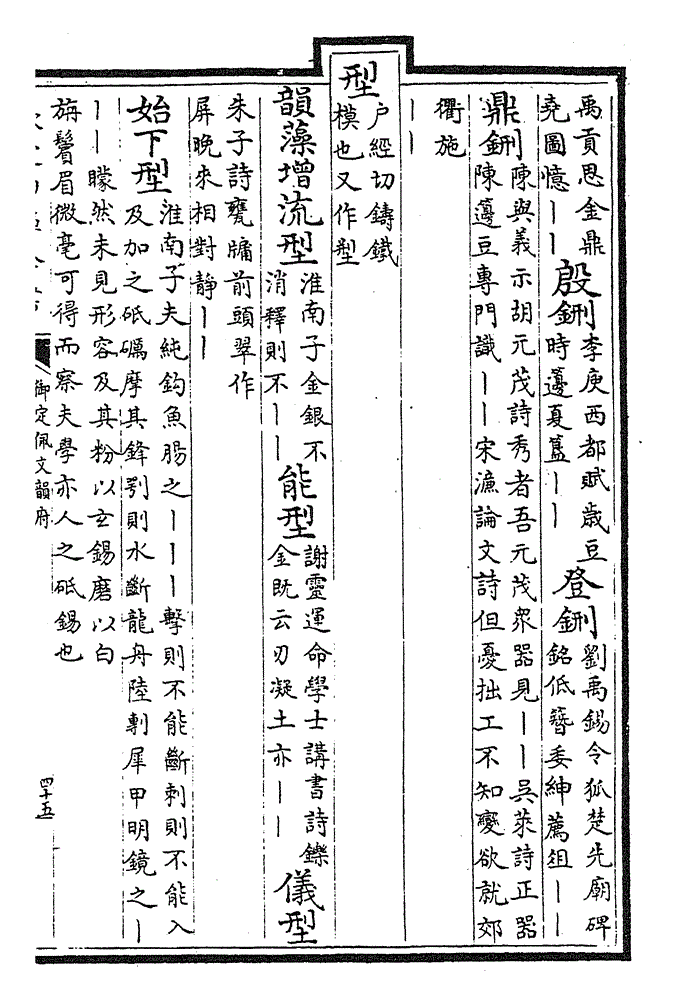 禹貢恩金鼎
堯圖憶丨丨
殷鉶
李庾西都賦歲豆
時籩夏簋丨丨
登鉶
劉禹錫令狐楚先廟碑
銘低簪委紳薦俎丨丨
鼎鉶
陳與義示胡元茂詩秀者吾元茂衆器見丨丨吳萊詩正器
陳籩豆專門識丨丨宋濂論文詩但憂拙工不知變欲就郊
衢施
丨丨
型
户經切鑄鐵
模也又作型
韻藻增流型
淮南子金銀不
消釋則不丨丨
能型
謝靈運命學士講書詩鑠
金既云刃凝土亦丨丨
儀型
朱子詩甕牖前頭翠作
屏晚來相對靜丨丨
始下型
淮南子夫純鈞魚腸之丨丨丨擊則不能斷刺則不能入
及加之砥礪摩其鋒㓵則水斷龍舟陸剸犀甲明鏡之丨
丨丨矇然未見形容及其粉以玄錫磨以白
旃鬢眉微毫可得而察夫學亦人之砥錫也
御定佩文韻府
四十五